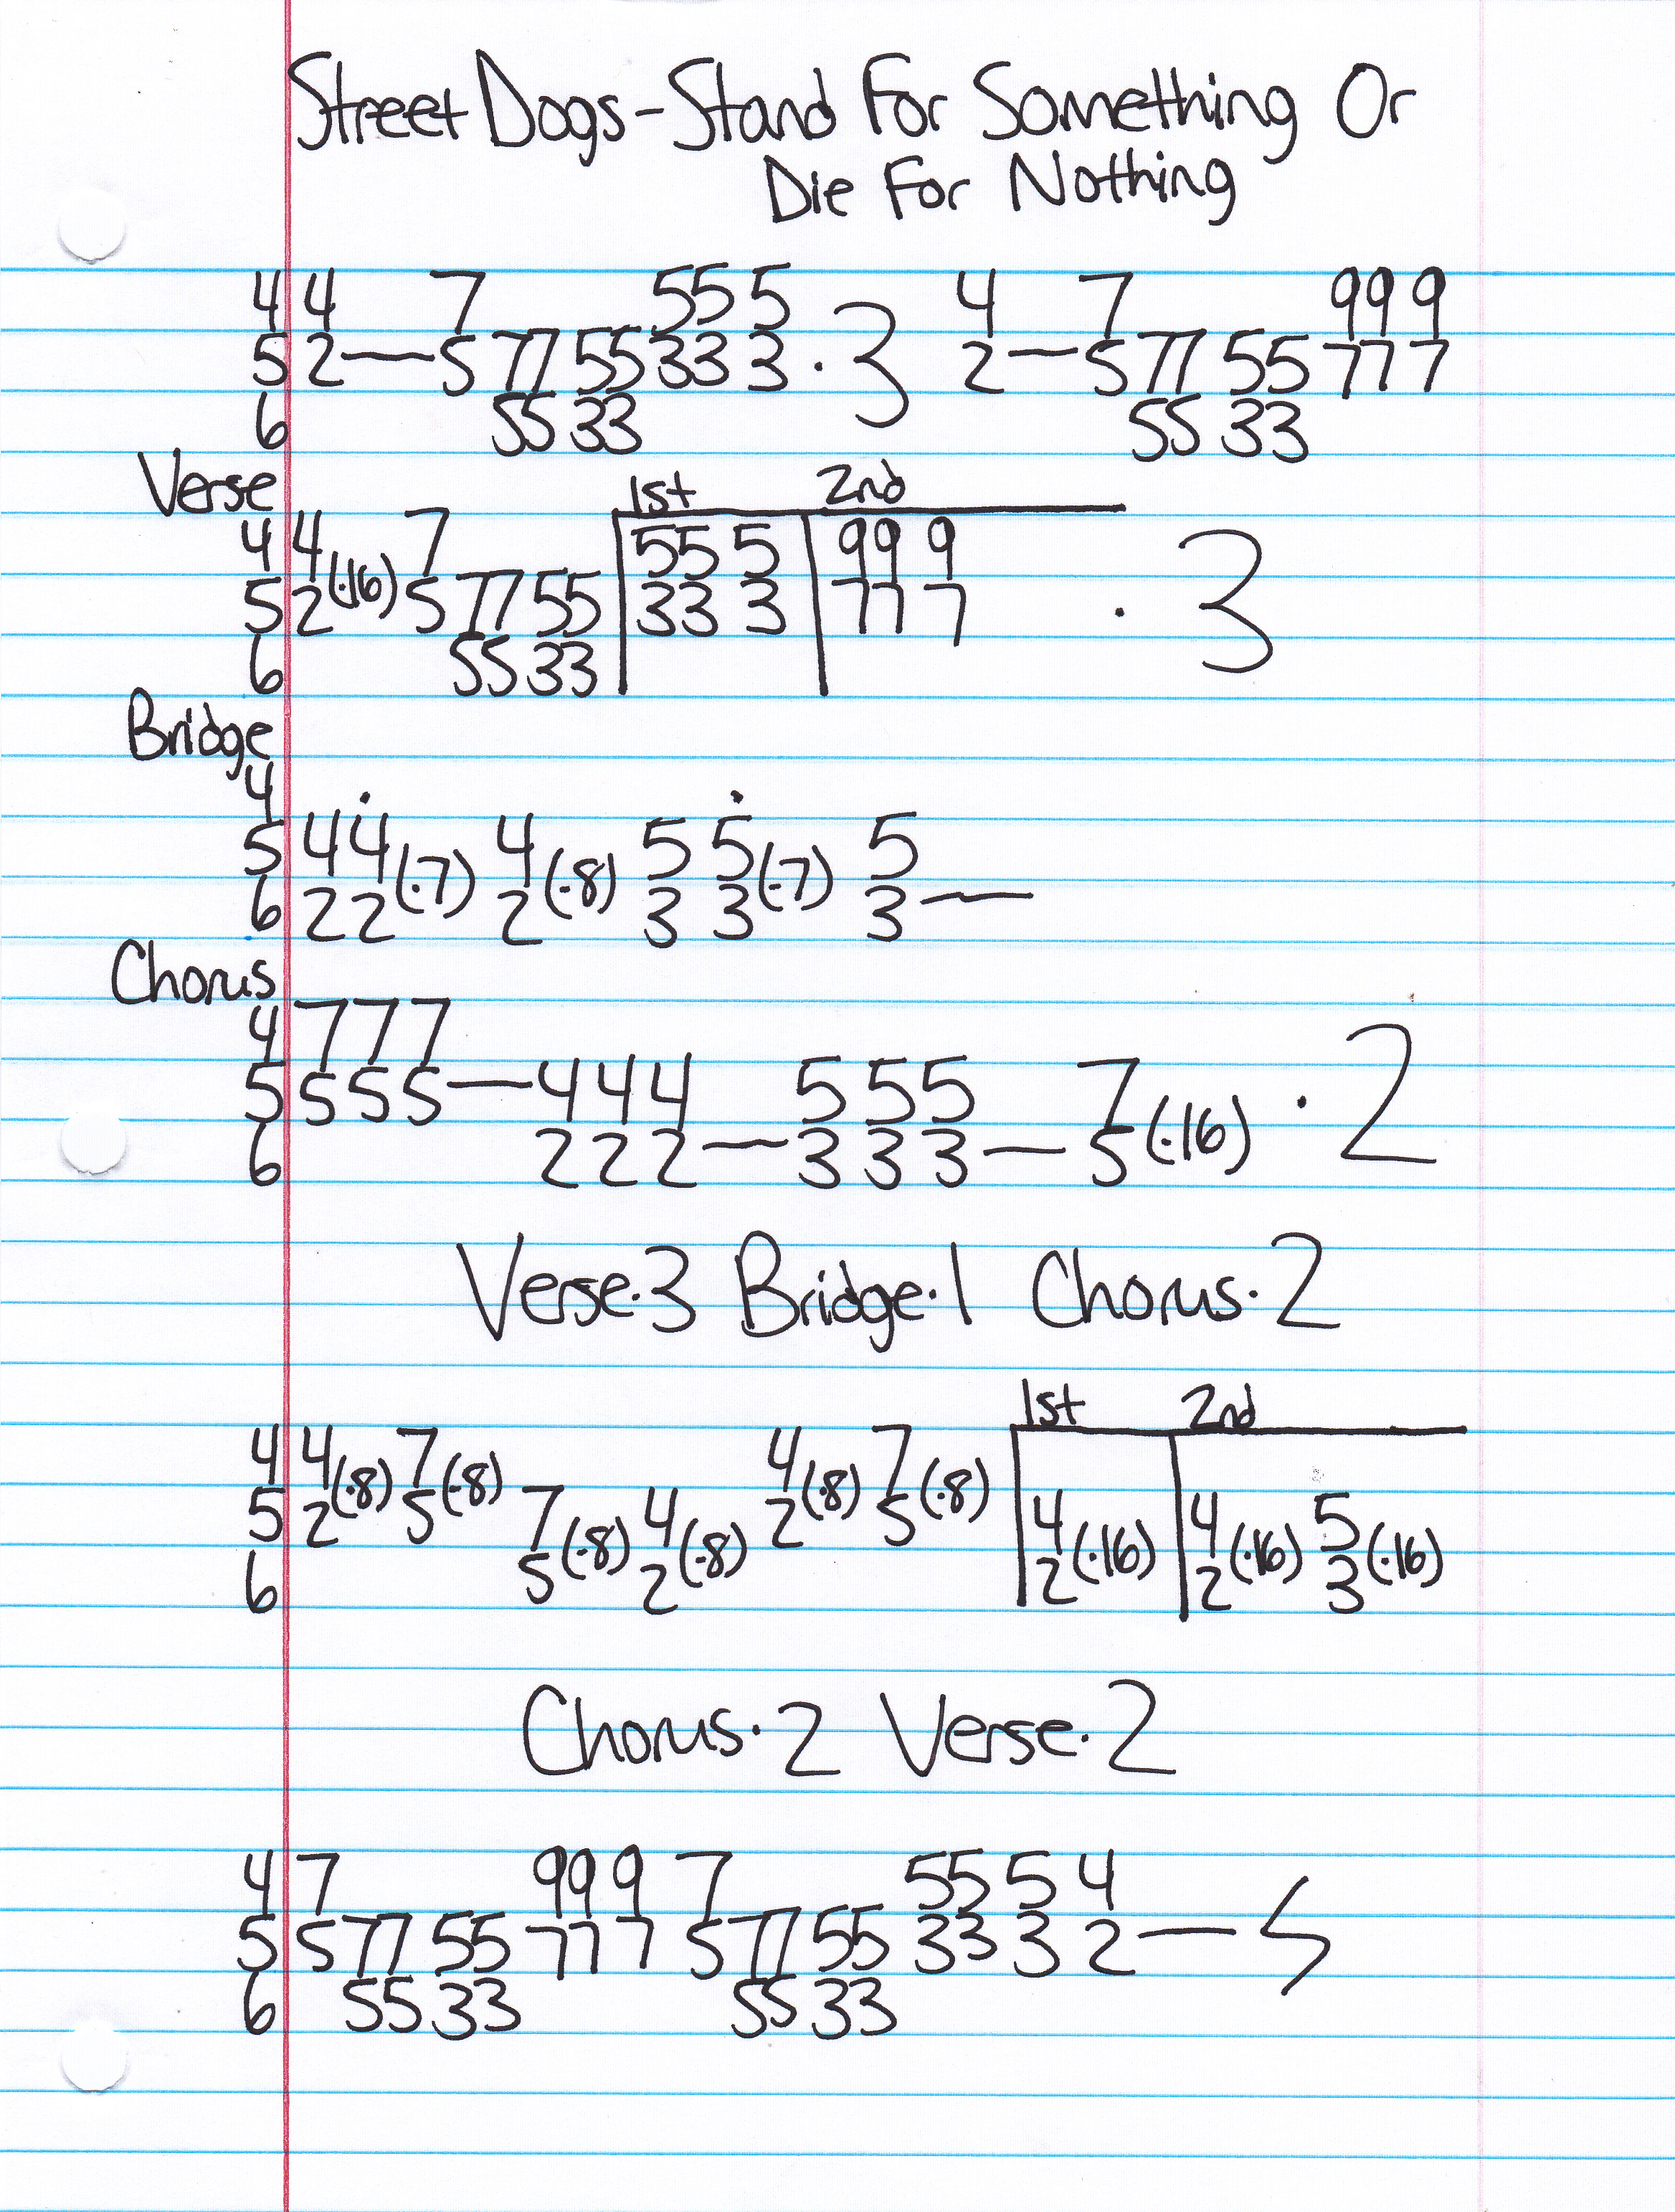 Street Dogs - Stand For Something Or
Die For Nothing
4 4 7 55 5 4 7 99 9
5 2—5 77 55 33 3 · 3 2—5 77 55 77 7
6 55 33 55 33
Verse 1st 2nd
4 4 7 55 5 99 9
5 2(·16) 5 77 55 33 3 77 7 · 3
6 55 33
Bridge
4
5 4 4 (·7) 4 (·8) 5 5 (·7) 5
6 2 2 2 3 3 3—
Chorus
4 7 7 7
5 5 5 5—4 4 4 5 5 5 7 (·16) · 2
6 2 2 2—3 3 3—5
Verse·3 Bridge·1 Chorus·2
1st 2nd
4 4(·8) 7(·8) 4(·8) 7(·8)
5 2 5 7(·8) 4(·8) 2 5 4(·16) 4(·16) 5(·16)
6 5 2 2 2 3
Chorus·2 Verse·2
4 7 99 9 7 55 5 4
5 5 77 55 77 7 5 77 55 33 3 2—
6 55 33 55 33